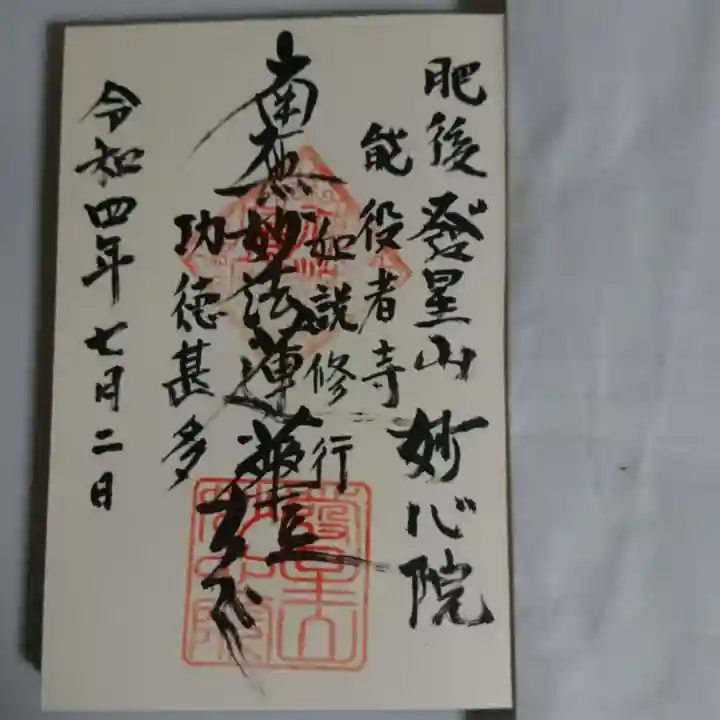 肥後 發星山 妙心院
能役者寺
如説修行
南無妙法蓮華経
功徳甚多
令和四年七月二日